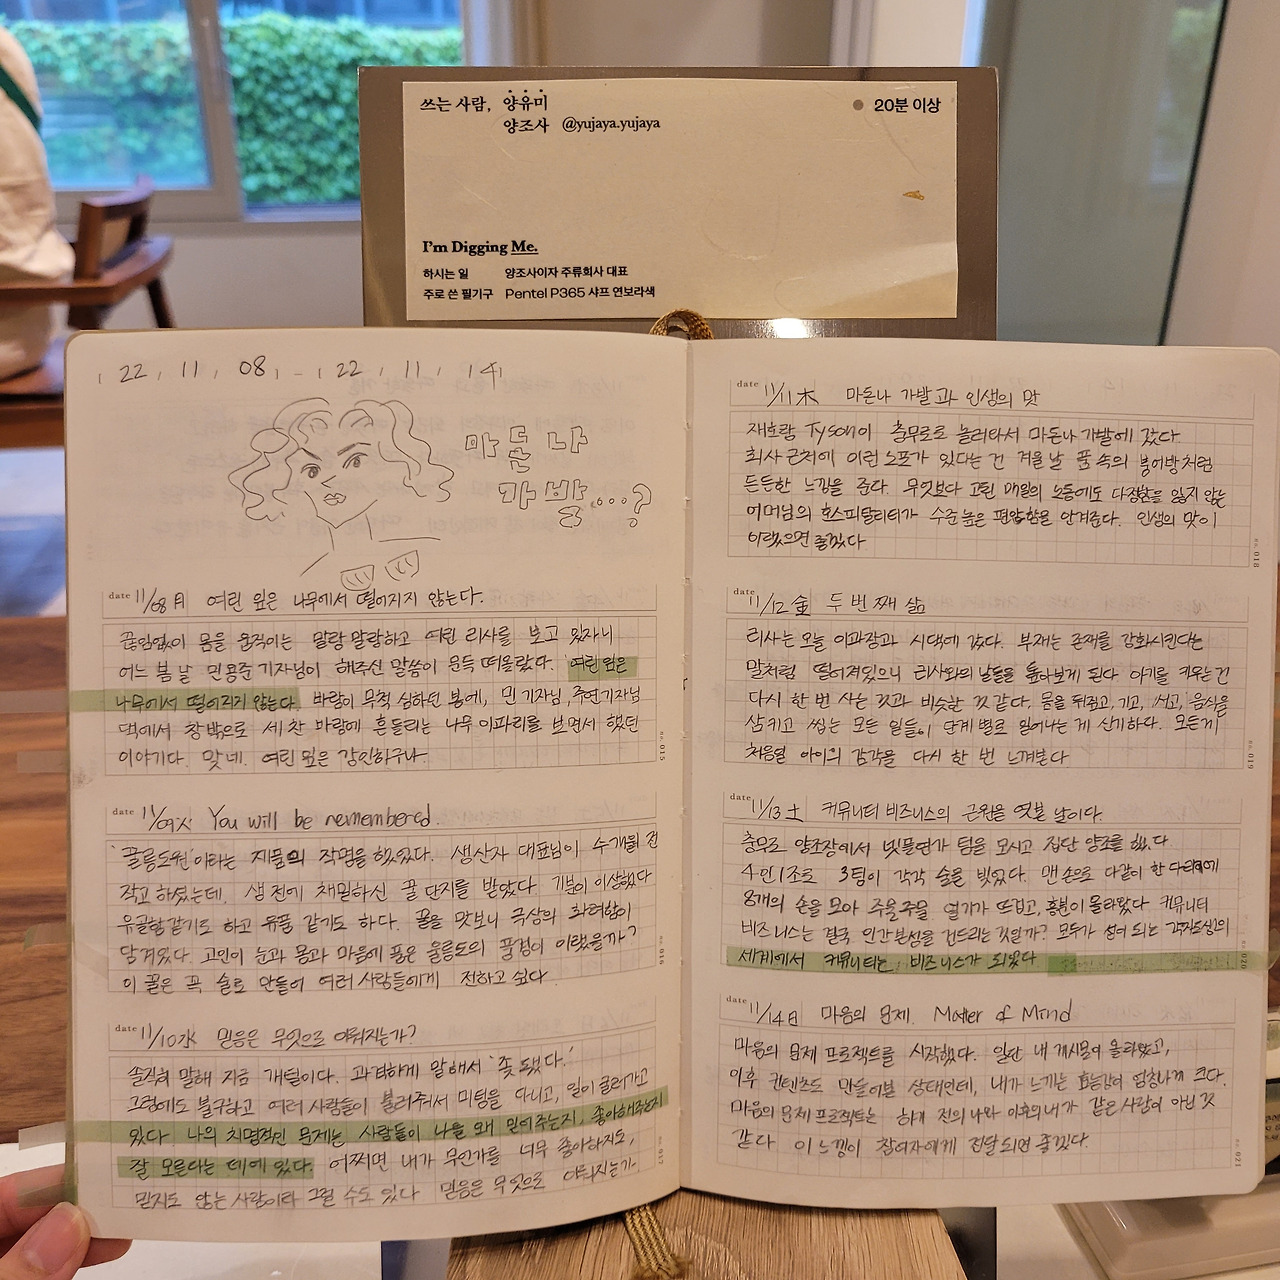 쓰는 사람, 양유미
양조사 @yujaya.yujaya
20분 이상
I'm Digging Me.
하시는 일 양조사이자 주류회사 대표
주로 쓴 필기구 Pentel P365 샤프 연보라색
22, 11, 08, - 22, 11, 14
마돈나
가발...?
date 11/08 月 여린 잎은 나무에서 떨어지지 않는다.
끊임없이 몸을 움직이는 말랑말랑하고 여린 리사를 보고 있자니
어느 봄날 민용준 기자님이 해주신 말씀이 문득 떠올랐다. 여린 잎은
나무에서 떨어지지 않는다. 바람이 무척 심하던 봄에, 민 기자님, 주연기자님
댁에서 창밖으로 세찬 바람에 흔들리는 나무 이파리를 보면서 했던
이야기다. 맞네. 여린 잎은 강인하구나.
no. 015
date 11/09 火 You will be remembered.
'꿀릉도원'이라는 제품의 작명을 했었다. 생산자 대표님이 수개월 전
작고하셨는데, 생전에 채밀하신 꿀단지를 받았다. 기분이 이상했다
유골함 같기도 하고 유품 같기도 하다. 꿀을 맛보니 극상의 화려함이
담겨있다. 고인이 눈과 몸과 마음에 품은 울릉도의 풍경이 이랬을까?
이 꿀은 꼭 술로 만들어 여러 사람들에게 전하고 싶다.
no. 016
date 11/10 水 믿음은 무엇으로 이뤄지는가?
솔직히 말해 지금 개털이다. 과격하게 말해서 '좆 됐다.'
그럼에도 불구하고 여러 사람들이 불러줘서 미팅을 다니고, 일이 굴러가고
있다 나의 치명적인 문제는 사람들이 나를 왜 믿어주는지, 좋아해주는지
잘 모른다는 데에 있다. 어쩌면 내가 무언가를 너무 좋아하지도,
믿지도 않는 사람이라 그럴 수도 있다 믿음은 무엇으로 이뤄지는가
no. 017
date 11/11 木 마돈나 가발과 인생의 맛
재호랑 Tyson이 충무로로 놀러와서 마돈나 가발에 갔다
회사 근처에 이런 노포가 있다는 건 겨울날 품 속의 붕어빵처럼
든든한 느낌을 준다. 무엇보다 고된 매일의 노동에도 다정함을 잃지 않는
어머님의 호스피탈리티가 수준 높은 편안함을 안겨준다. 인생의 맛이
이랬으면 좋겠다
no. 018
date 11/12 金 두 번째 삶
리사는 오늘 이과장과 시댁에 갔다. 부재는 존재를 강화시킨다는
말처럼 떨어져있으니 리사와의 날들을 돌아보게 된다 아기를 키우는 건
다시 한 번 사는 것과 비슷한 것 같다. 몸을 뒤집고, 기고, 서고, 음식을
삼키고 씹는 모든 일들이 단계별로 일어나는 게 신기하다. 모든게
처음일 아이의 감각을 다시 한 번 느껴본다
no. 019
date 11/13 土 커뮤니티 비즈니스의 근원을 엿본 날이다.
충무로 양조장에서 넷플연가 팀을 모시고 집단 양조를 했다
4인 1조로 3팀이 각각 술을 빚었다. 맨손으로 다같이 한 다라이에
8개의 손을 모아 주물주물 열기가 뜨겁고, 흥분이 올라왔다 커뮤니티
비즈니스는 결국 인간본성을 건드리는 것일까? 모두가 섬이 되는
세계에서 커뮤니티는, 비즈니스가 되었다
no. 020
date 11/14 日 마음의 문제. Matter of Mind
마음의 문제 프로젝트를 시작했다. 일단 내 게시물이 올라왔고,
이후 컨텐츠도 만들어본 상태인데, 내가 느끼는 효능감이 엄청나게 크다.
마음의 문제 프로젝트는 하기 전의 나와 이후의 내가 같은 사람이 아닌 것
같다 이 느낌이 참여자에게 전달되면 좋겠다.
no. 021